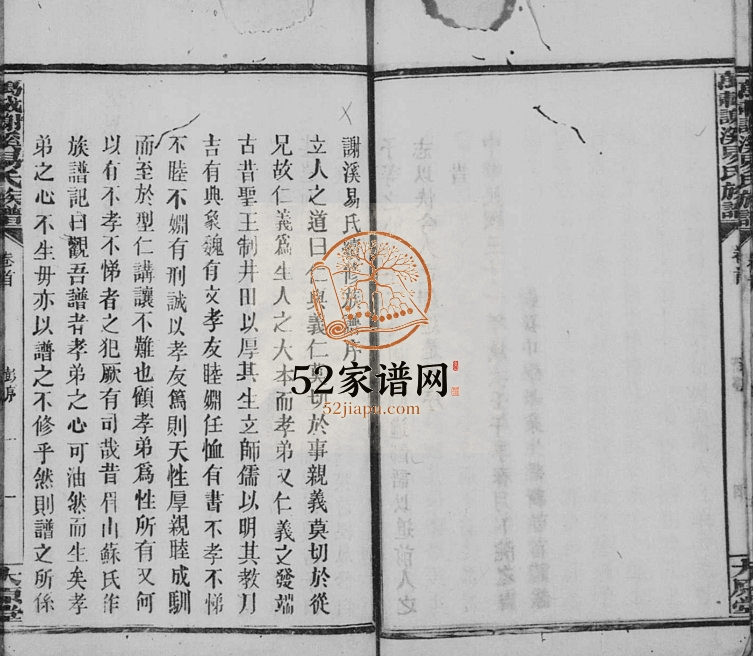 萬載謝溪易氏族譜
大原堂
謝溪易氏續修族譜序
立人之道曰仁與義仁莫切於事親義莫切於從
兄故仁義爲生人之大本而孝弟又仁義之發端
古昔聖王制井田以厚其生立師儒以明其教月
吉有典象魏有文孝友睦婣任恤有書不孝不悌
不睦不婣有刑誠以孝友篤則天性厚親睦成馴
而至於型仁講讓不難也顧孝弟爲性所有又何
以有不孝不悌者之犯厥有司哉昔眉山蘇氏作
族譜記曰觀吾譜者孝弟之心可油然而生矣孝
弟之心不生毋亦以譜之不修乎然則譜之所係
萬載謝溪易氏族譜
卷首
一
大原堂
52家谱网
52jiapu.com